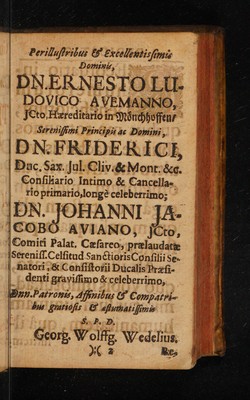 Perillustribus & Excellentissimis
Dominis,
DN. ERNESTO LU-
DOVICO AVEMANNO,
JCto, Hæreditario in Mönchhoffen/
Serenissimi Principis ac Domini,
DN. FRIDERICI,
Duc. Sax. Jul. Cliv. & Mont. &c.
Consiliario Intimo & Cancella-
rio primario, longè celeberrimo;
DN. JOHANNI JA-
COBO AVIANO, JCto,
Comiti Palat. Cæsareo, prælaudatæ
Sereniss. Celsitud Sanctioris Consilii Se-
natori, & Consistorii Ducalis Præsi-
denti gravissimo & celeberrimo,
Dnn. Patronis, Affinibus & Compatri-
bus gratiosis & æstumatissimis
S. P. D.
Georg. Wolffg. Wedelius.
)( 2